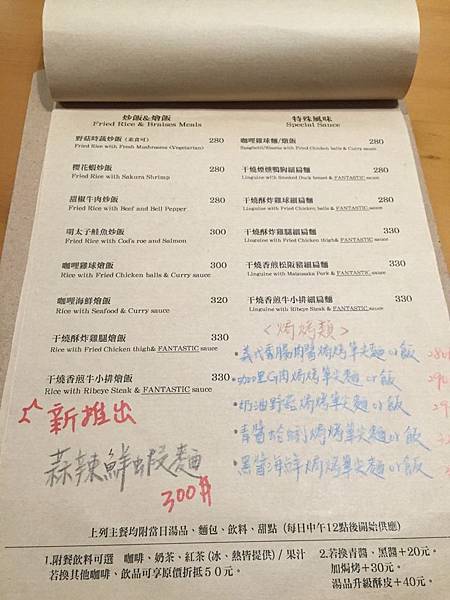 炒飯&燴飯
Fried Rice & Braises Meals
野菇時蔬炒飯（素食可） 280
Fried Rice with Fresh Mushrooms (Vegetarian)
櫻花蝦炒飯 280
Fried Rice with Sakura Shrimp
甜椒牛肉炒飯 280
Fried Rice with Beef and Bell Pepper
明太子鮭魚炒飯 300
Fried Rice with Cod's roe and Salmon
咖哩雞球燴飯 300
Rice with Fried Chicken balls & Curry sauce
咖哩海鮮燴飯 320
Rice with Seafood & Curry sauce
干燒酥炸雞腿燴飯 330
Rice with Fried Chicken thigh& FANTASTIC sauce
干燒香煎牛小排燴飯 330
Rice with Ribeye Steak & FANTASTIC sauce
新推出
蒜辣鮮蝦麵
300元
特殊風味
Special Sauce
咖哩雞球麵/燴飯 280
Spaghetti/Risotto with Fried Chicken balls & Curry sauce
干燒煙燻鴨胸細扁麵 280
Linguine with Smoked Duck breast & FANTASTIC sauce
干燒酥炸雞球細扁麵 280
Linguine with Fried Chicken balls & FANTASTIC sauce
干燒酥炸雞腿細扁麵 330
Linguine with Fried Chicken thigh& FANTASTIC sauce
干燒香煎松阪豬細扁麵 330
Linguine with Matsusaka Pork & FANTASTIC sauce
干燒香煎牛小排細扁麵 330
Linguine with Ribeye Steak & FANTASTIC sauce
<焗烤類>
義式香腸肉醬焗烤筆尖麵or飯 280
咖哩 焗烤筆尖麵or飯
奶油野菇焗烤筆尖麵or飯
青醬蛤蜊焗烤筆尖麵or飯
黑醬海鮮焗烤筆尖麵or飯
上列主餐均附當日湯品、麵包、飲料、甜點（每日中午12點後開始供應）
1.附餐飲料可選 咖啡、奶茶、紅茶(冰、熱皆提供) / 果汁
若換其他咖啡、飲品可享原價折抵５０元。
2.若換青醬、黑醬＋20元。
加焗烤＋30元。
湯品升級酥皮＋40元。